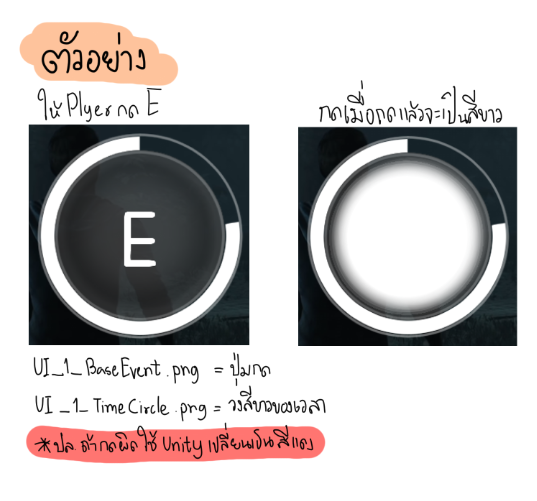 ตัวอย่าง
ให้ Plyer กด E
กดเมื่อกดแล้วจะเป็นสีขาว
E
UI_1_BaseEvent.png = ปุ่มกด
UI_1_TimeCircle.png = วงสีขาวของเวลา
*ปล. ถ้ากดผิดใช้ Unity เปลี่ยนเป็นสีแดง